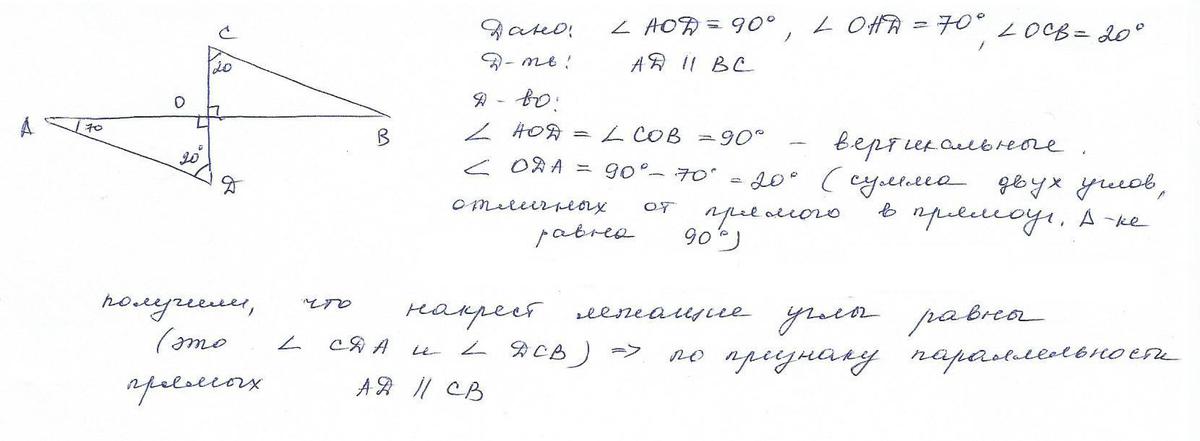 Дано: ∠ AOD = 90°, ∠ OAD = 70°, ∠ OCB = 20°
Д-ть: AD || BC
Д-во:
∠ AOD = ∠ COB = 90° – вертикальные.
∠ ODA = 90° – 70° = 20° (сумма двух углов,
отличных от прямого в прямоуг. Δ-ке
равна 90°)
C
20
O
A
70
B
20°
D
получили, что накрест лежащие углы равны
(это ∠ CDA и ∠ DCB) => по признаку параллельности
прямых AD || CB